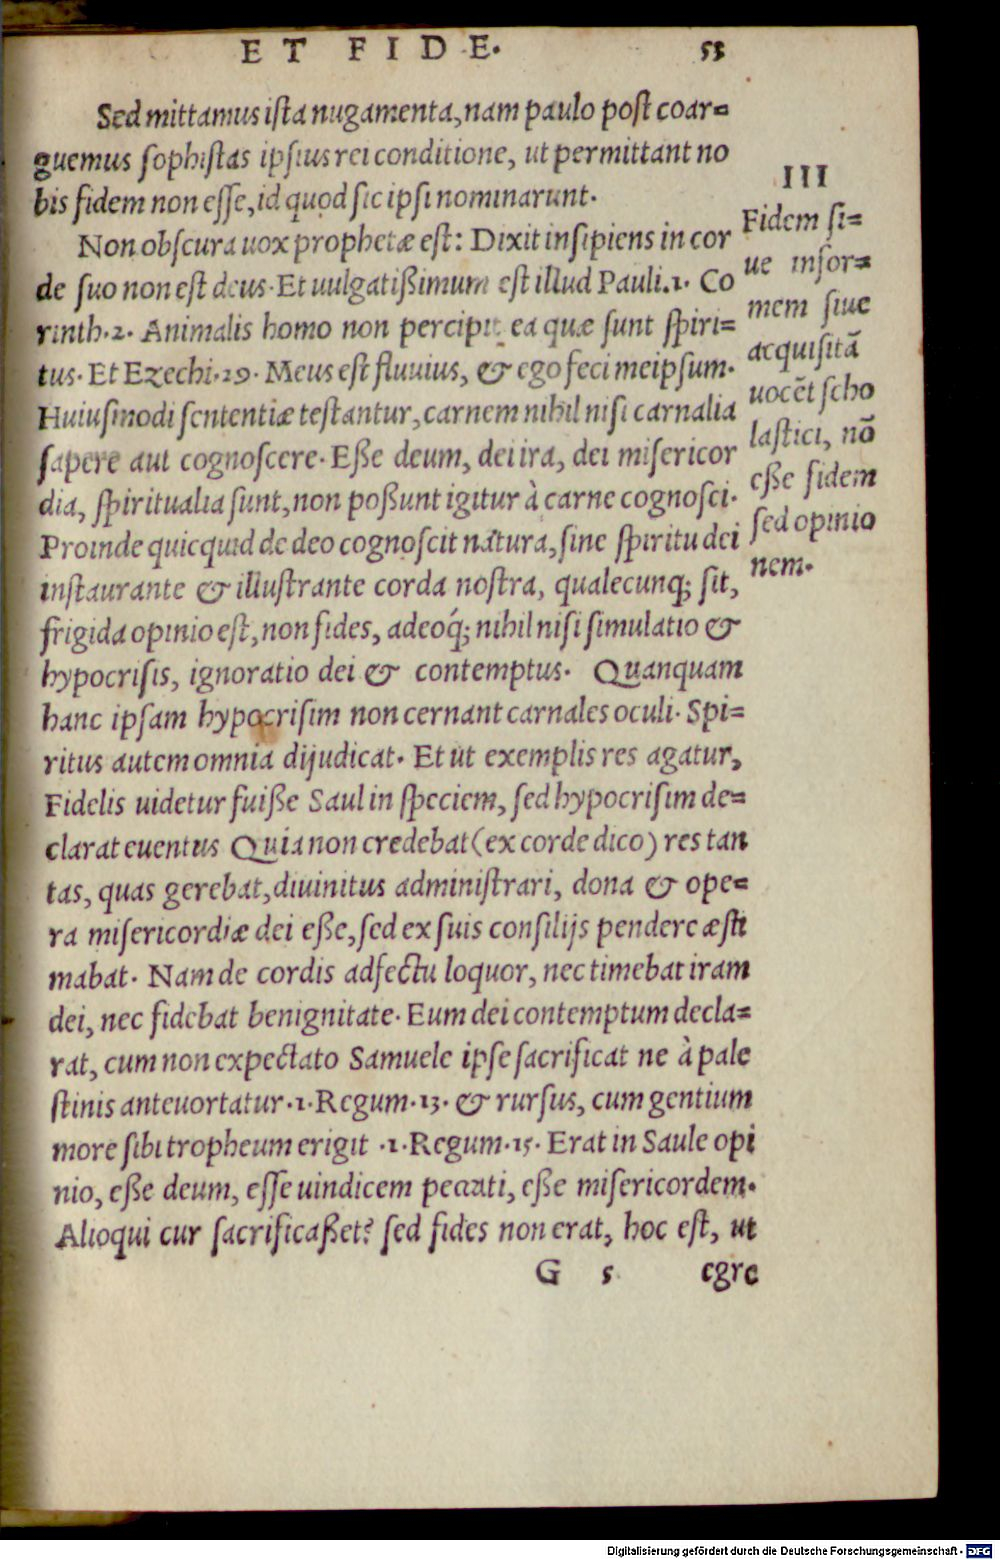 ET FIDE. 53
Sed mittamus iſta nugamenta, nam paulo poſt coar=
guemus ſophiſtas ipſius rei conditione, ut permittant no
bis fidem non eſſe, id quod ſic ipſi nominarunt.
Non obſcura uox prophetæ eſt: Dixit inſipiens in cor
de ſuo non eſt deus. Et uulgatißimum eſt illud Pauli.1. Co
rinth.2. Animalis homo non percipit ea quæ ſunt ſpiri=
tus. Et Ezechi.29. Meus eſt fluuius, & ego feci meipſum.
Huiuſmodi ſententiæ teſtantur, carnem nihil niſi carnalia
ſapere aut cognoſcere. Eße deum, dei ira, dei miſericor
dia, ſpiritualia ſunt, non poßunt igitur à carne cognoſci.
Proinde quicquid de deo cognoſcit natura, ſine ſpiritu dei
inſtaurante & illuſtrante corda noſtra, qualecunq; ſit,
frigida opinio eſt, non fides, adeoq́; nihil niſi ſimulatio &
hypocriſis, ignoratio dei & contemptus. Quanquam
hanc ipſam hypocriſim non cernant carnales oculi. Spi=
ritus autem omnia dijudicat. Et ut exemplis res agatur,
Fidelis uidetur fuiße Saul in ſpeciem, ſed hypocriſim de=
clarat euentus Quia non credebat (ex corde dico) res tan
tas, quas gerebat, diuinitus adminiſtrari, dona & ope=
ra miſericordiæ dei eße, ſed ex ſuis conſilijs pendere æſti
mabat. Nam de cordis adfectu loquor, nec timebat iram
dei, nec fidebat benignitate. Eum dei contemptum decla=
rat, cum non expectato Samuele ipſe ſacrificat ne à pale
ſtinis anteuortatur.1.Regum.13. & rurſus, cum gentium
more ſibi tropheum erigit .1.Regum.15. Erat in Saule opi
nio, eße deum, eſſe uindicem peccati, eße miſericordem.
Alioqui cur ſacrificaßet? ſed fides non erat, hoc eſt, ut
G 5 egre
III
Fidem ſi=
ue infor=
mem ſiue
acquiſitā
uocēt ſcho
laſtici, nō
eße fidem
ſed opinio
nem.
Digitalisierung gefördert durch die Deutsche Forschungsgemeinschaft - DFG